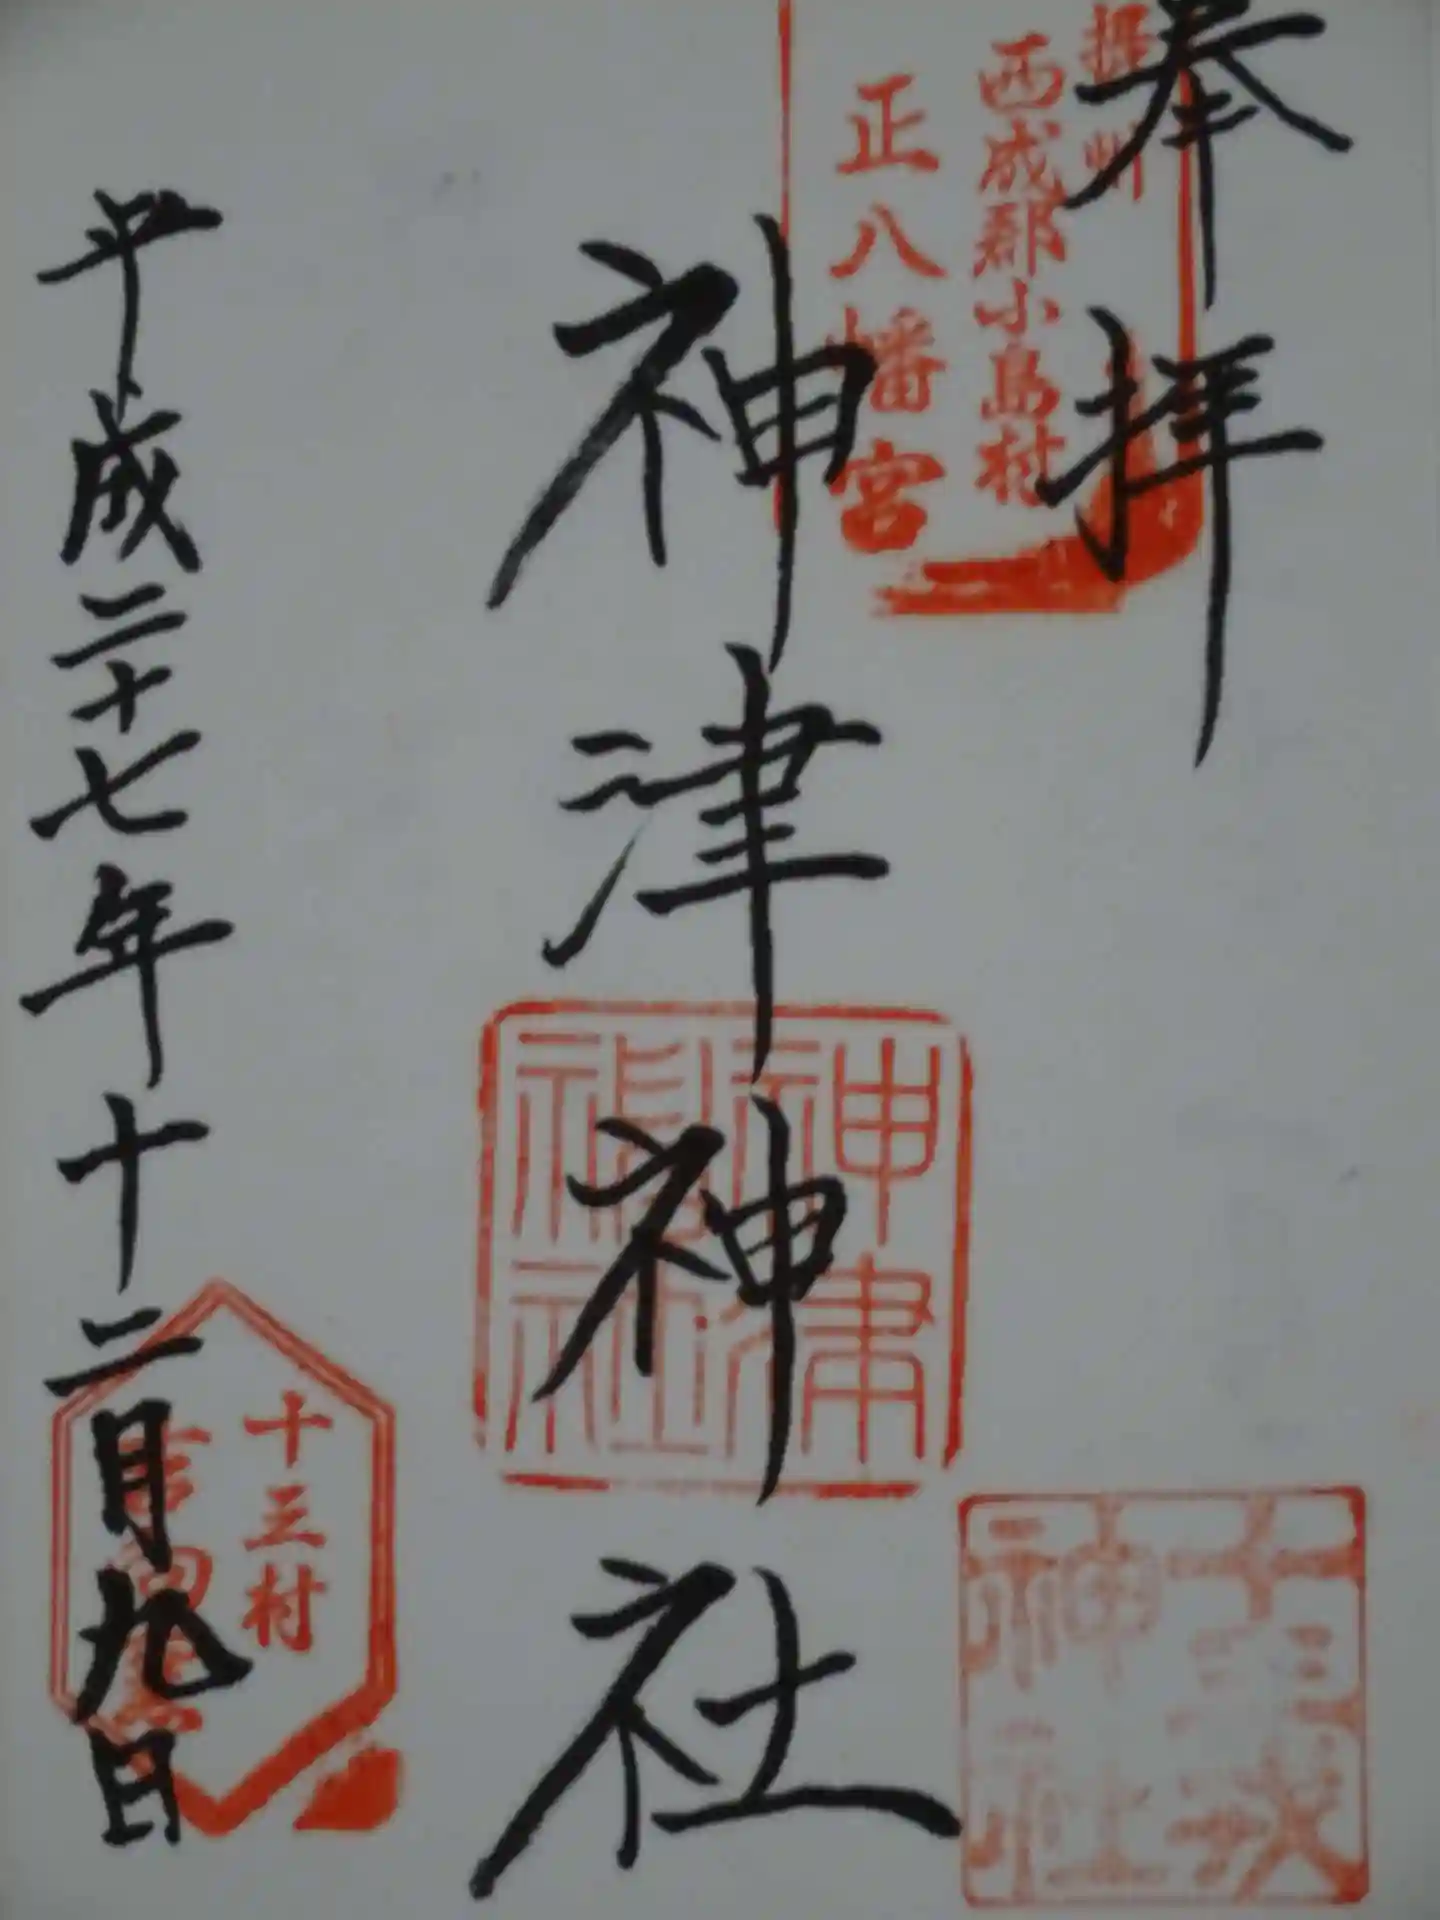 奉拝
摂州
西成郡小島村
正八幡宮
神津神社
神津
神社
十三戎
神社
平成二十七年十二月九日
十三村